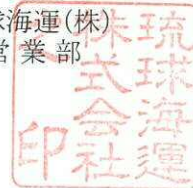 球海運(株)
営 業 部
琉球海運
株式会社
之印